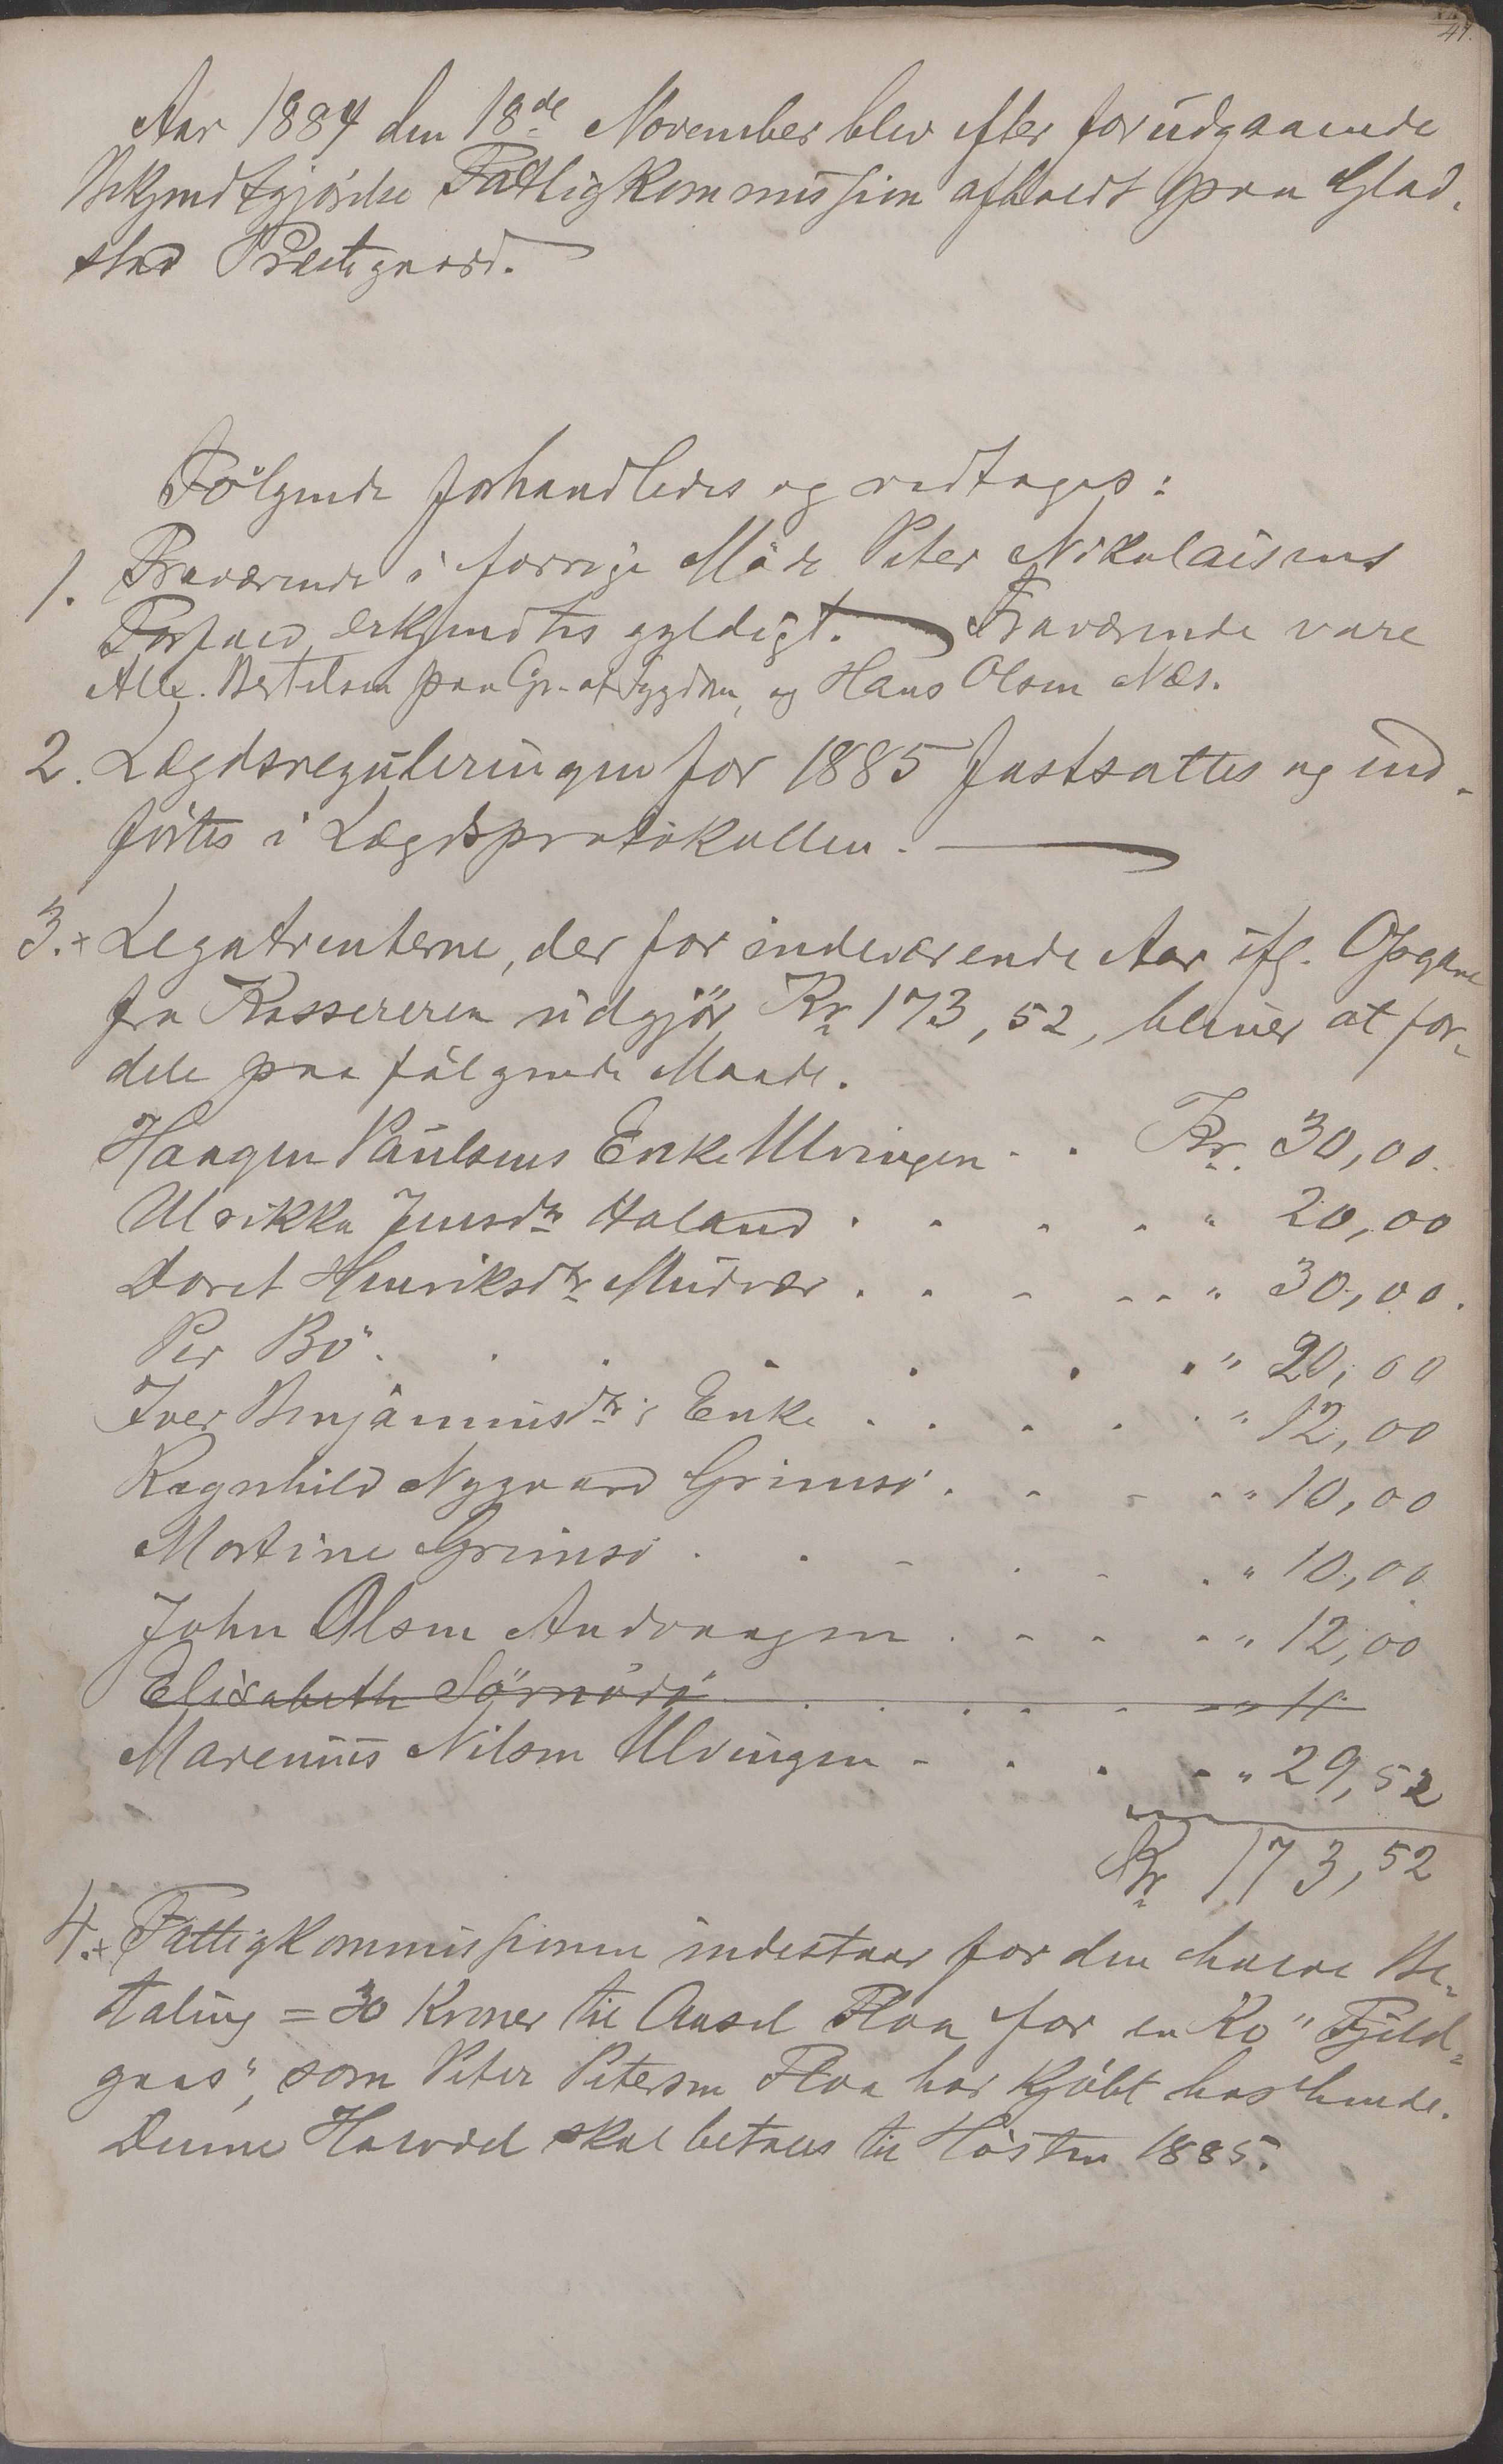 41.
Aar 1884 den 18de November blev efter forudgaaende
Bekjendtgjørelse Fattigkommission afholdt paa Glad-
stad Præstegaard.
Følgende forhandledes og vedtoges:
1. Fraværende i forrige Møde Peter Nikolaisens
Forfald erkjendtes gyldigt. Fraværende vare
Alex. Bertelsen paa Gr. af Sygdom, og Hans Olsen Næs.
2. Lægdsreguleringen for 1885 fastsattes og ind-
førtes i Lægdsprotokollen.
3.+ Legatrenterne, der for indeværende Aar ifg. Opgave
fra Kassereren udgjør Kr 173,52, bliver at for-
dele paa følgende Maade.
Haagen Paulsens Enke Ulvingen . . Kr. 30,00.
Ulrikka Jensdtr Haland . . . . " 20,00
Doret Henriksdtr Mudvær . . - - - " 30,00.
Per Bø . . . . . . " 20,00
Iver Benjaminsdtr's Enke . . . . . " 12,00
Ragnhild Nygaard Grimsø . . - - . " 10,00
Martine Grimsø . . - . - . " 10,00
John Olsen Andvaagen . - - - " 12,00
Elisabeth Sørnødø . . . . - - " 11
Marenius Nilsen Ulvingen - . . - " 29,52
Kr 173,52
4.+ Fattigkommissionen indestaar for den halve Be-
taling = 30 Kroner til Aasel Floa for en Ko "Fjeld-
gaas", som Peter Petersen Floa har kjøbt hos hende.
Denne Halvdel skal betales til Høsten 1885.